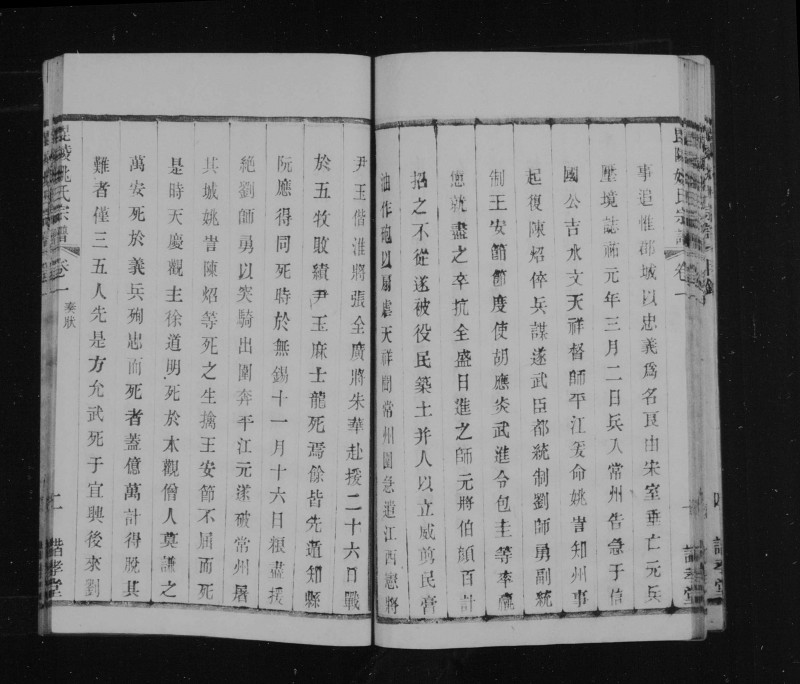 事追惟郡城以忠義爲名良由宋室垂亡元兵
壓境誌祐元年三月二日兵入常州告急于信
國公吉水文天祥督師平江爰命姚訔知州事
起復陳炤倅兵謀遂武臣都統制劉師勇副統
制王安節節度使胡應炎武進令包圭等率
就盡之卒抗全盛日進之師元將伯顏百計
招之不從遂被役民築土并人以立威剪民膏
油作砲以扇虐天祥聞常州圍急遣江西憲將
尹玉偕淮將張全廣將朱華赴援二十六日戰
於五牧敗績尹玉麻士龍死焉餘皆先遁知縣
阮應得同死時於無錫十一月十六日粮盡援
絕劉師勇以突騎出圍奔平江元遂破常州屠
其城姚訔陳炤等死之生擒王安節不屈而死
是時天慶觀主徐道明死於木觀僧人莫謙之
萬安死於義兵殉忠而死者蓋億萬計得脫其
難者僅三五人先是方允武死于宜興後來劉
毘陵姚氏宗譜
卷一
奏狀
二
諧孝堂